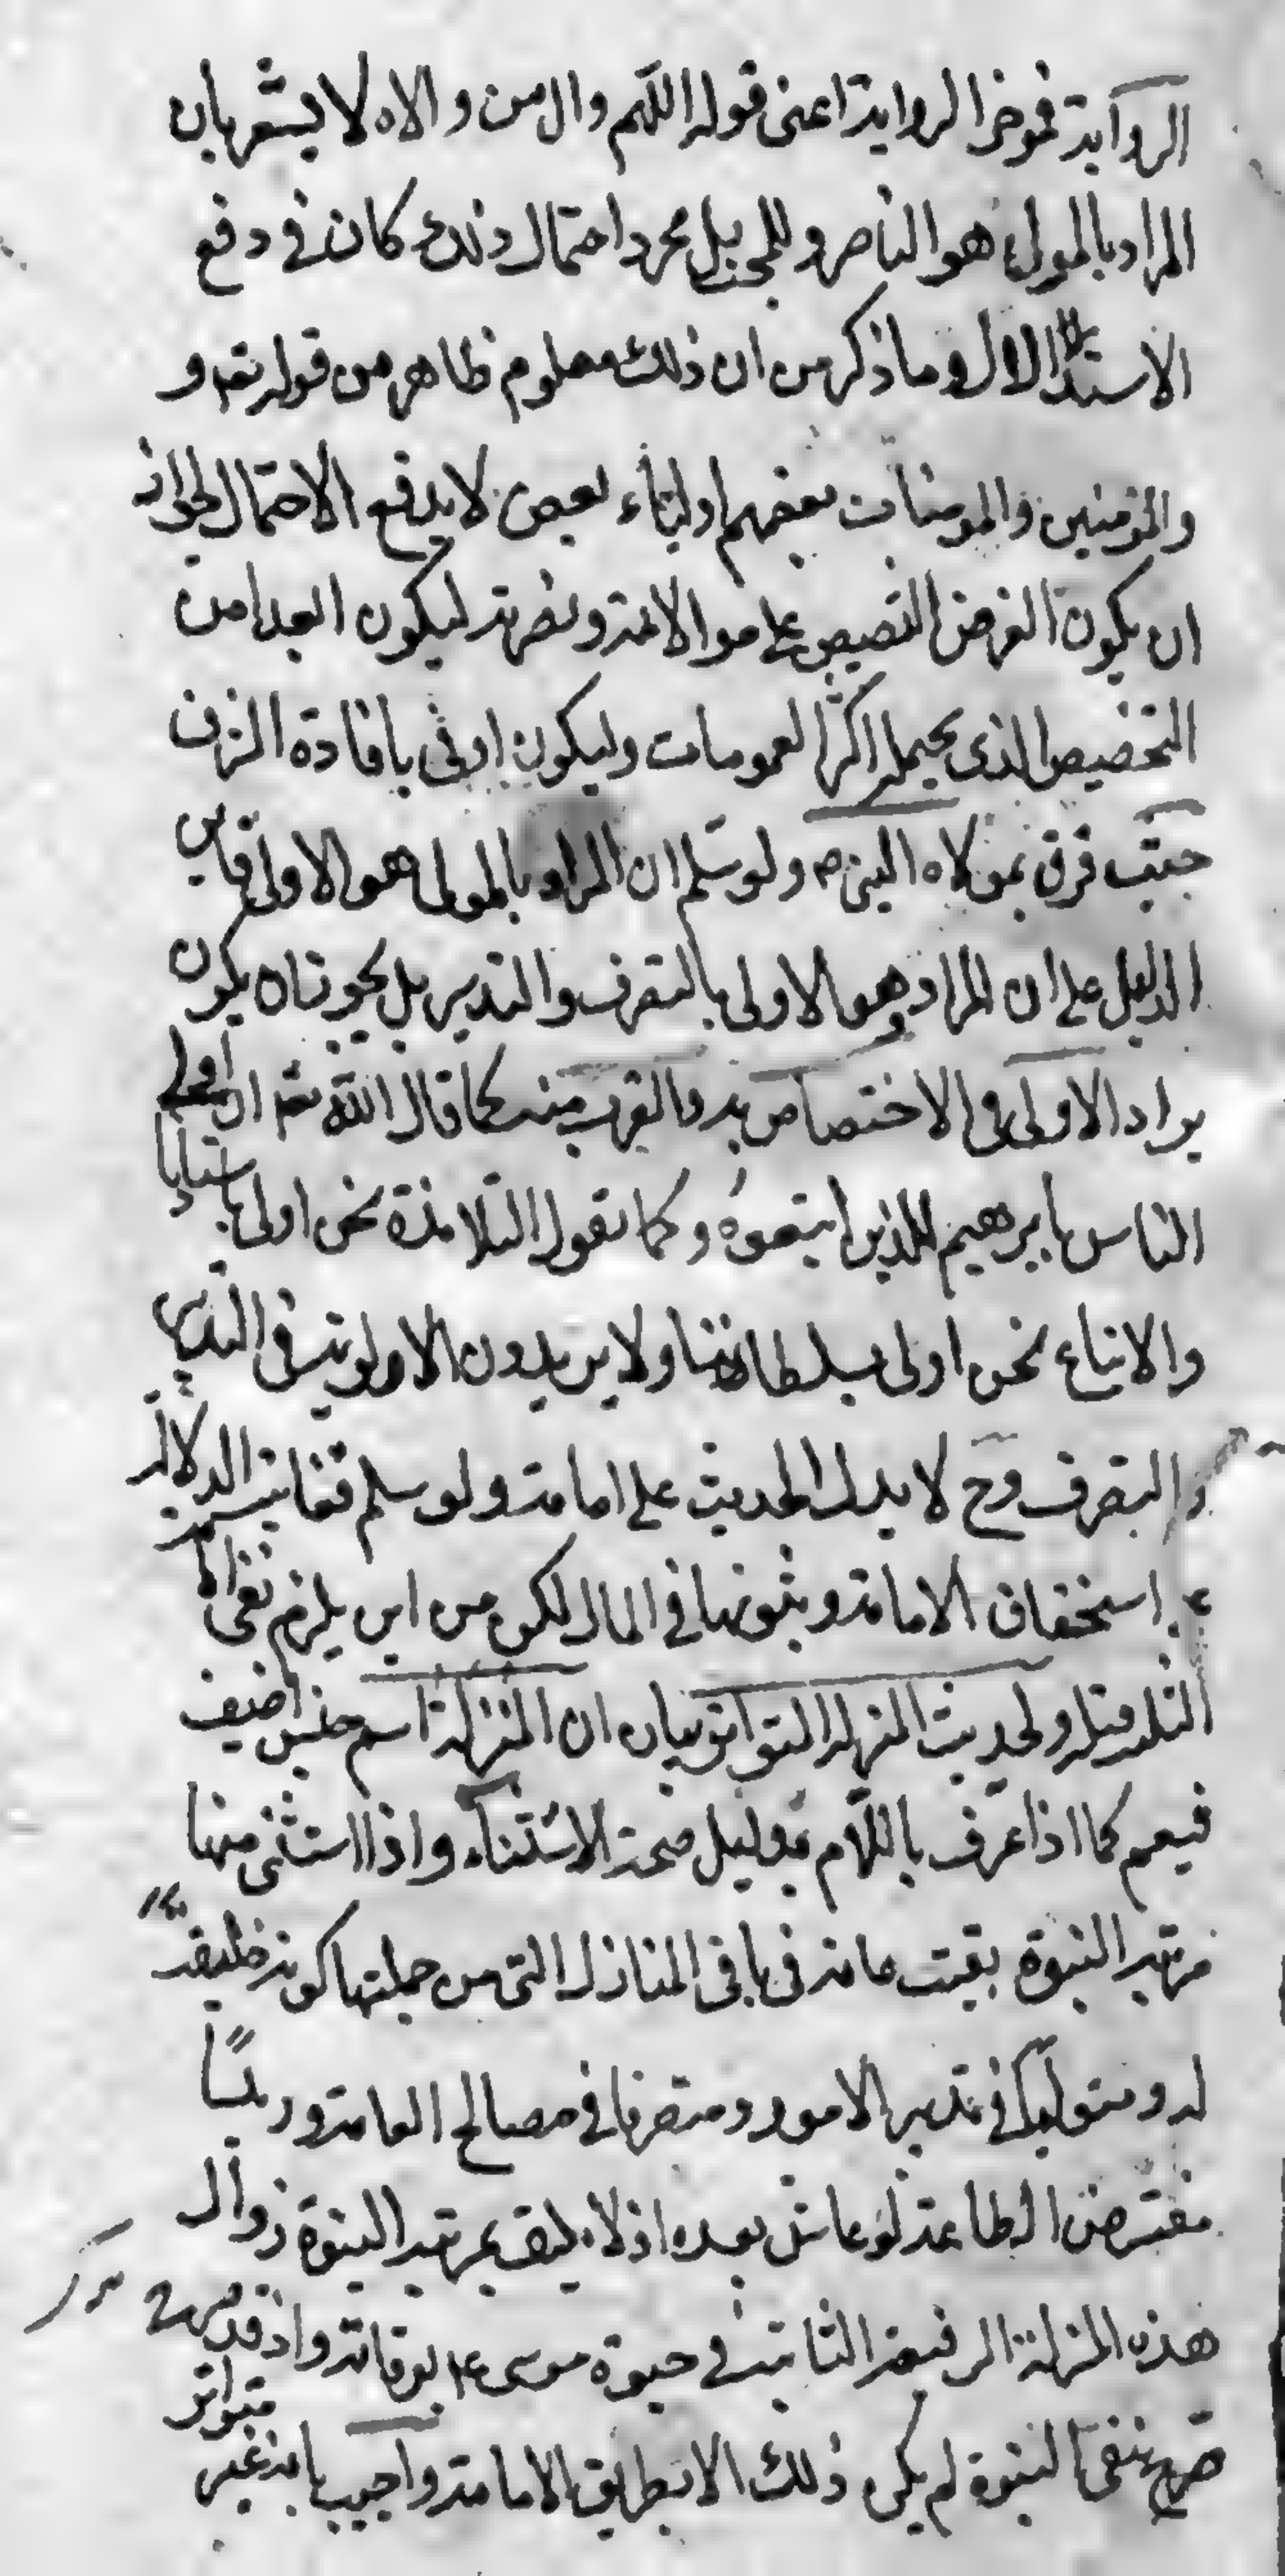 الرواية فموخر الرواية اعنى قوله اللهم وال من والاه لا يشعر بان
المراد بالمولى هو الناصر والمحب بل مجرد احتمال ذلك كان فى دفع
الاستدلال وما ذكر من ان ذلك معلوم ظاهر من قوله تعه و
والمؤمنين والمومنات بعضهم اولياء بعض لا يدفع الاحتمال لجواز
ان يكون الغرض التنصيص على موالاته ونصرته ليكون ابعد من
التخصيص الذى يحيمله اكثر العمومات وليكون اوفى بافادة الشرف
حيث قرن بمولاه النبى ص ولو سلم ان المراد بالمولى هو الاولى فاين
الدليل على ان المراد هو الاولى بالتصرف والتدبير بل يجوز ان يكون
يراد الاولى فى الاختصاص به والقرب منه كما قال الله تعه ان اولى
الناس بابرهيم للذين اتبعوه وكما تقول التلامذة نحن اولى باستاذنا
والاتباع نحن اولى بسلطاننا ولا يريدون الاولوية فى التدبير
والتصرف وح لا يدل الحديث على امامته ولو سلم فغايته الدلالة
استحقاق الامامة وثبوتها فى المال لكن من اين يلزم نفى
الثلثة قبله ولحديث المنزلة المتواتر بيان ان المنزلة اسم جنس اضيف
فيعم كما اذا عرف باللام بدليل صحة الاستثناء واذا استثنى منها
مرتبة النبوة بقيت عامة فى باقى المنازل التى من جملتها كونه خليفة
له ومتوليا فى تدبير الامور ومتصرفا فى مصالح العامة ورئيسا
مفترض الطاعة لو عاش بعده اذ لا يليق بمرتبة النبوة زوال
هذه المنزلة الرفيعة الثابتة فى حيوة موسى ع بوفاته واذ قد
صرح بنفى النبوة لم يكن ذلك الا بطريق الامامة واجيب بانه غير
متواتر